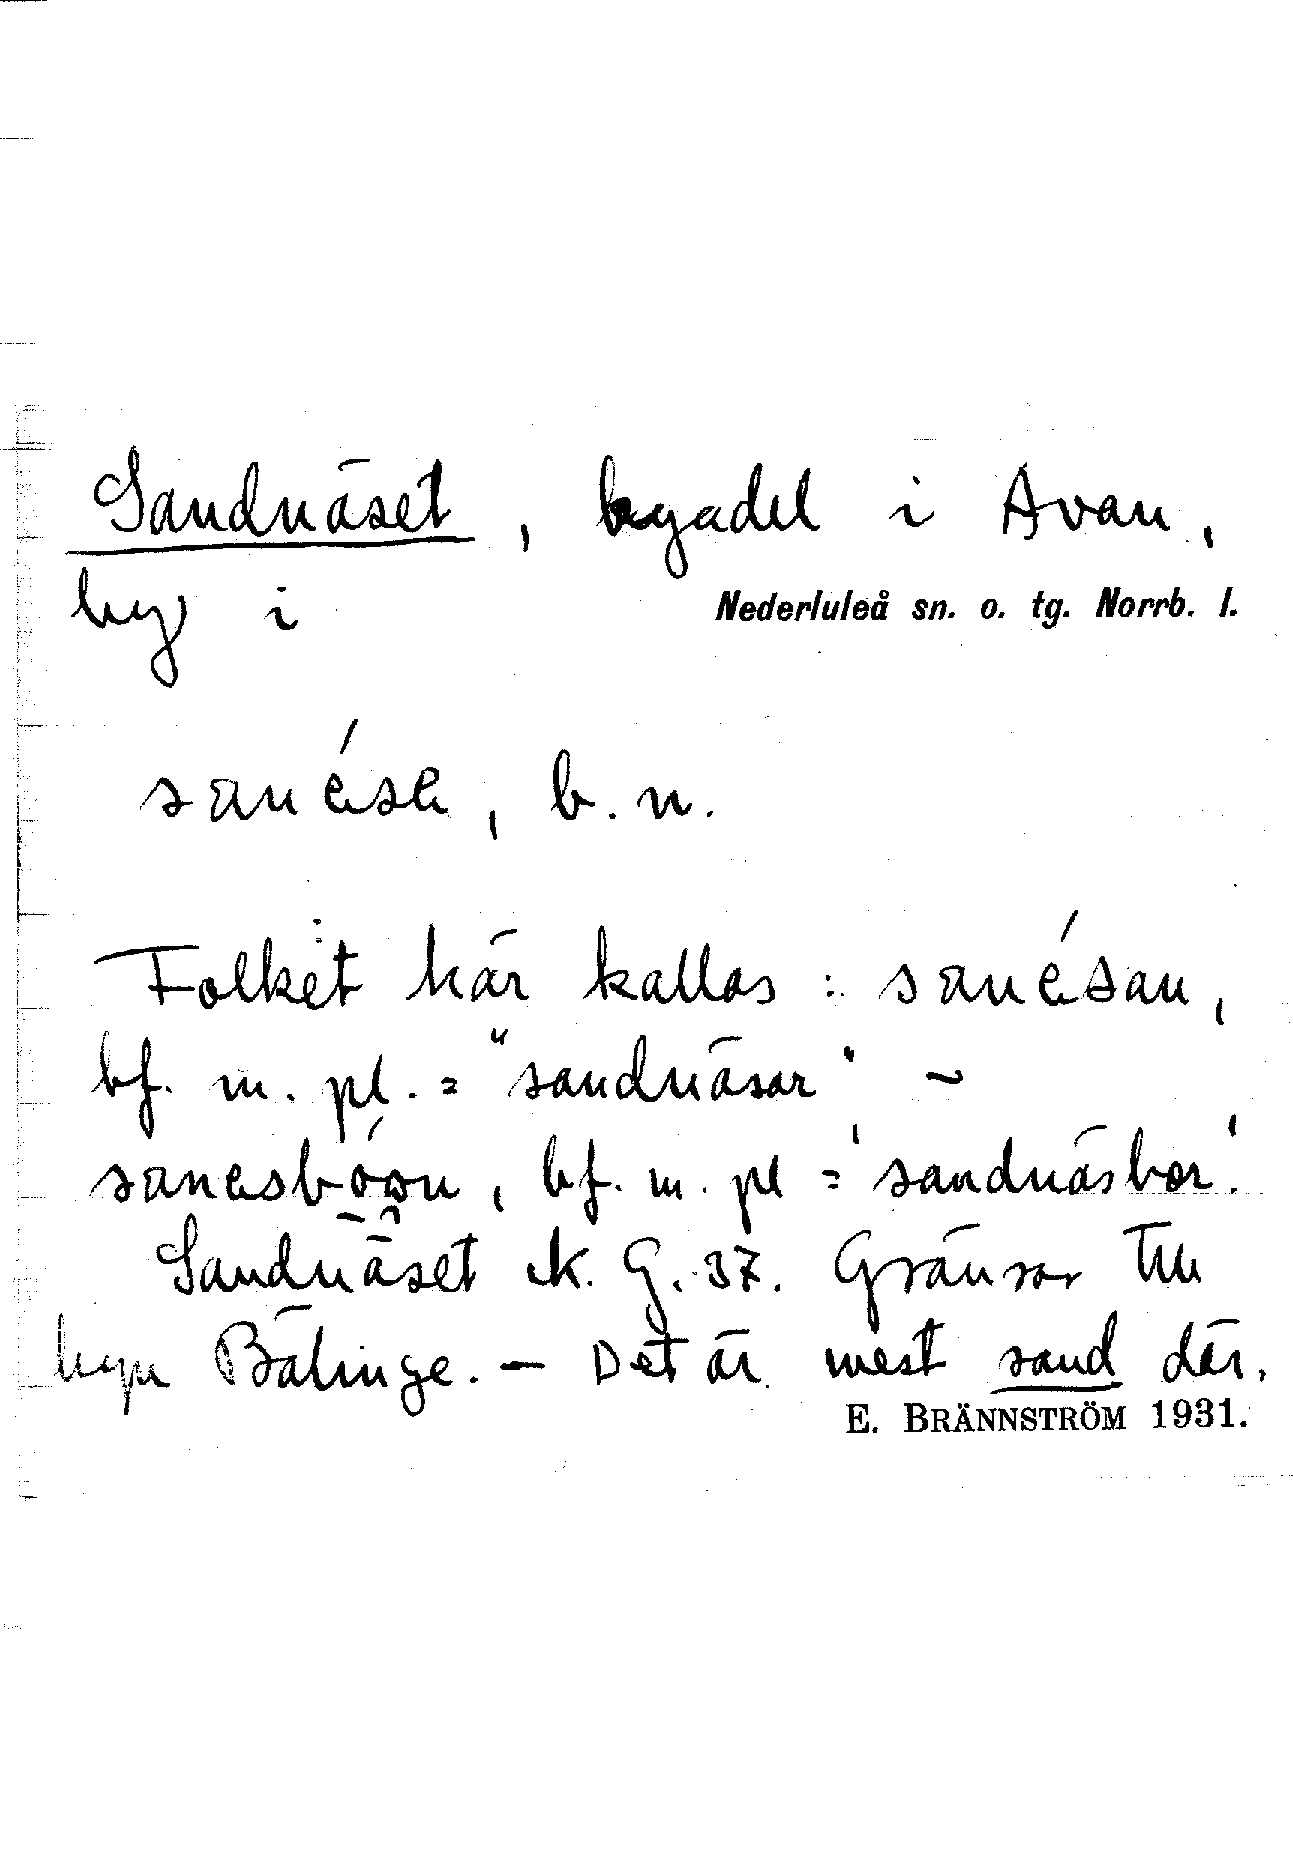 Sandnäset, byadel i Avan,
by i Nederluleå sn. o. tg. Norrb. l.
sanése, b. n.
Folket här kallas: sanésan,
bf. m. pl. = "sandnäsar" –
bf. m. pl = 'sandnäsbor'.
Sandnäset ek. G. 37. Gränsar till
byn Bälinge. – Det är mest sand där.
E. BRÄNNSTRÖM 1931.